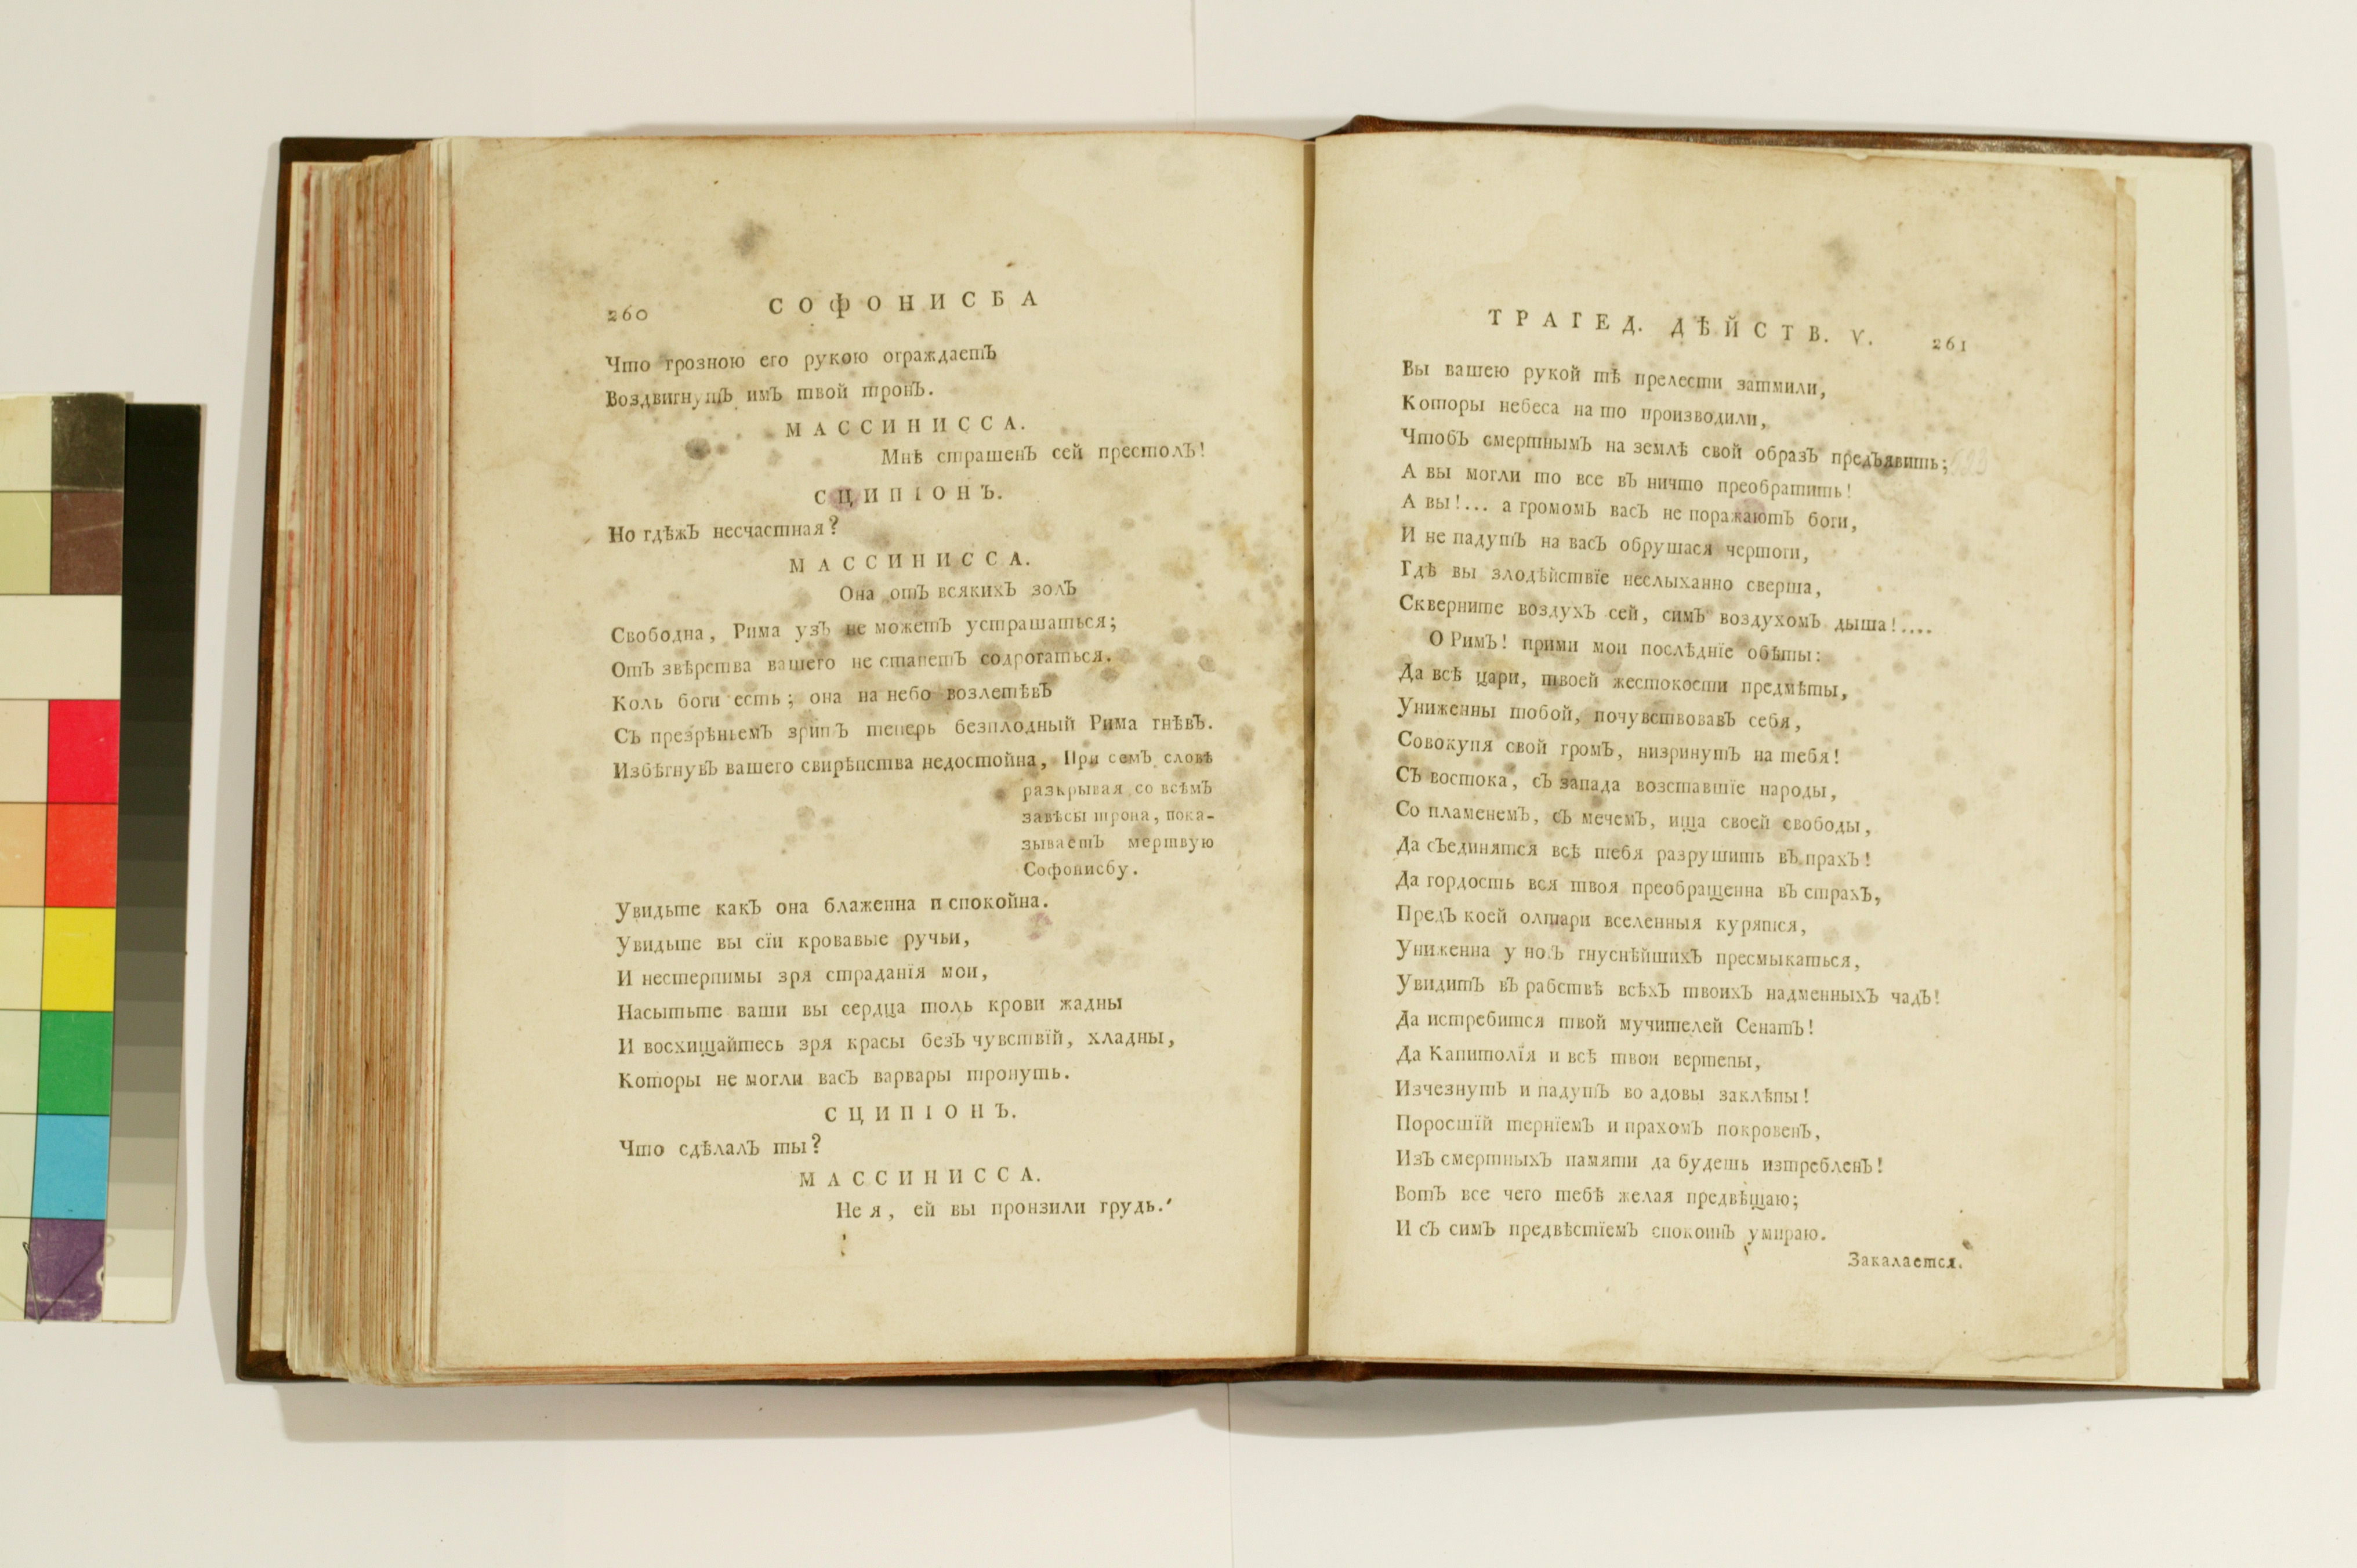 260 СОФОНИСБА
Что грозною его рукою ограждаетъ
Воздвигнутъ имъ твой тронъ.
МАССИНИССА.
Мнѣ страшенъ сей престолъ!
СЦИПІОНЪ.
Но гдѣжъ несчастная?
МАССИНИССА.
Она отъ всякихъ золъ
Свободна, Рима узъ не можетъ устрашаться;
Отъ звѣрства вашего не станетъ содрогаться.
Коль боги есть; она на небо возлетѣвъ
Съ презрѣніемъ зритъ теперь безплодный Рима гнѣвъ.
Избѣгнувъ вашего свирѣпства недостойна, При семъ словѣ
разкрывая со всѣмъ
завѣсы трона, пока-
зываетъ мертвую
Софонисбу.
Увидьте какъ она блаженна и спокойна.
Увидьте вы сїи кровавые ручьи,
И нестерпимы зря страданїя мои,
Насытьте ваши вы сердца толь крови жадны
И восхищайтесь зря красы безъ чувствїй, хладны,
Которы не могли васъ варвары тронуть.
СЦИПІОНЪ.
Что сдѣлалъ ты?
МАССИНИССА.
Не я, ей вы пронзили грудь.
ТРАГЕД. ДѢЙСТВ. V. 261
Вы вашею рукой тѣ прелести затмили,
Которы небеса на то производили,
Чтобъ смертнымъ на землѣ свой образъ предъявить;
А вы могли то все въ ничто преобратить!
А вы!... а громомъ васъ не поражаютъ боги,
И не падутъ на васъ обрушася чертоги,
Гдѣ вы злодѣйствїе неслыханно сверша,
Скверните воздухъ сей, симъ воздухомъ дыша!....
О Римъ! прими мои послѣднїе обѣты:
Да всѣ цари, твоей жестокости предмѣты,
Униженны тобой, почувствовавъ себя,
Совокупя свой громъ, низринутъ на тебя!
Съ востока, съ запада возставшїе народы,
Со пламенемъ, съ мечемъ, ища своей свободы,
Да съединятся всѣ тебя разрушить въ прахъ!
Да гордость вся твоя преобращенна въ страхъ,
Предъ коей олтари вселенныя курятся,
Униженна у ногъ гнуснѣйшихъ пресмыкаться,
Увидитъ въ рабствѣ всѣхъ твоихъ надменныхъ чадъ!
Да истребится твой мучителей Сенатъ!
Да Капитолїя и всѣ твои вертепы,
Изчезнутъ и падутъ во адовы заклѣпы!
Поросшїй тернїемъ и прахомъ покровенъ,
Изъ смертныхъ памяти да будешь изтребленъ!
Вотъ все чего тебѣ желая предвѣщаю;
И съ симъ предвѣстїемъ спокоинъ умираю.
Закалается.